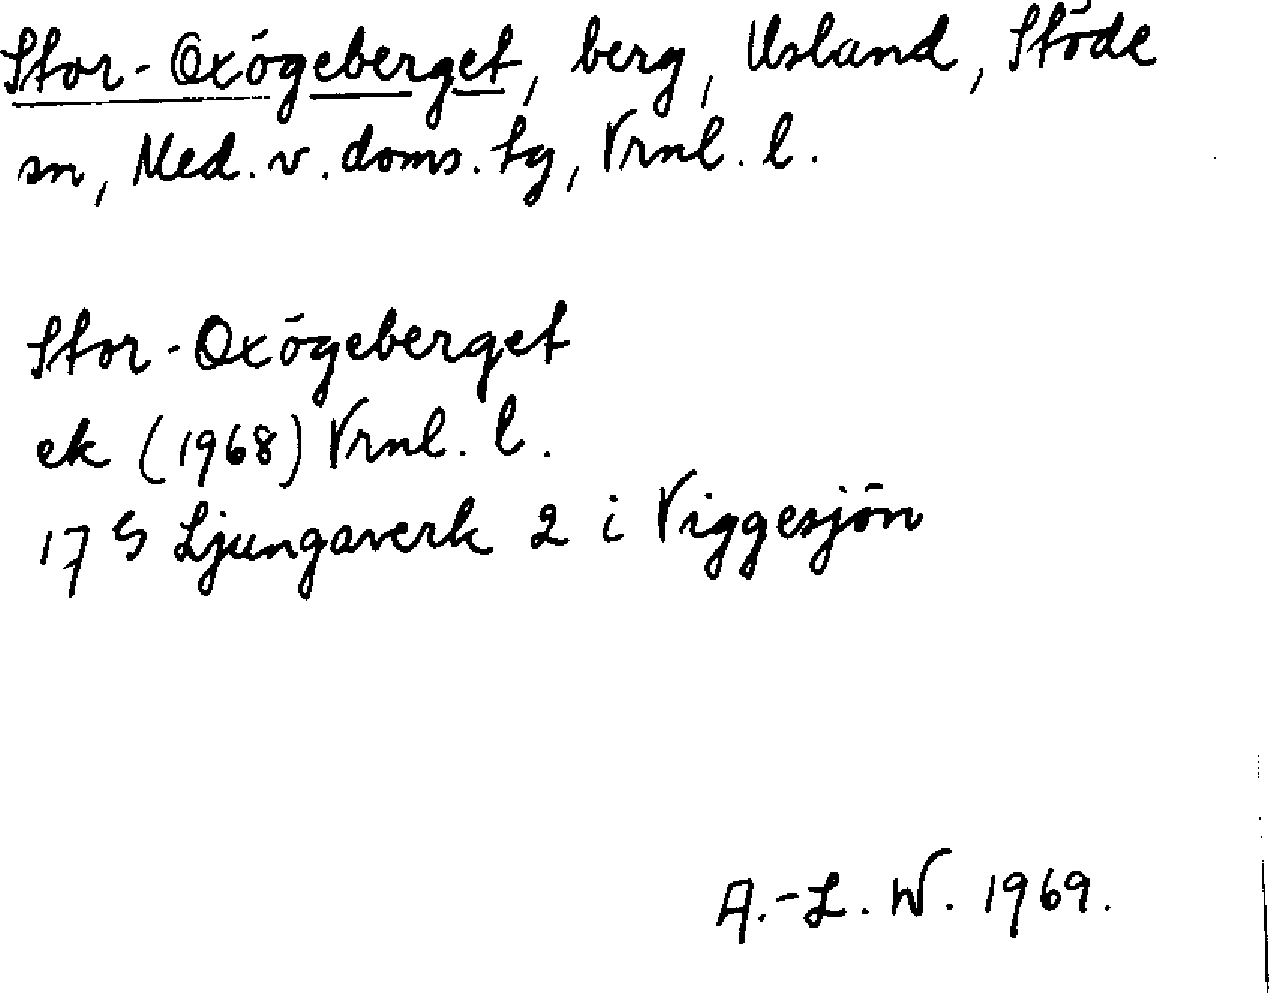 Stor-Oxögeberget, berg, Usland, Stöde
sn, Med. v. doms. tg, Vrnl. l.
Stor-Oxögeberget
ek (1968) Vrnl. l.
17 G Ljungaverk 2 i Viggesjön
A.-L. W. 1969.